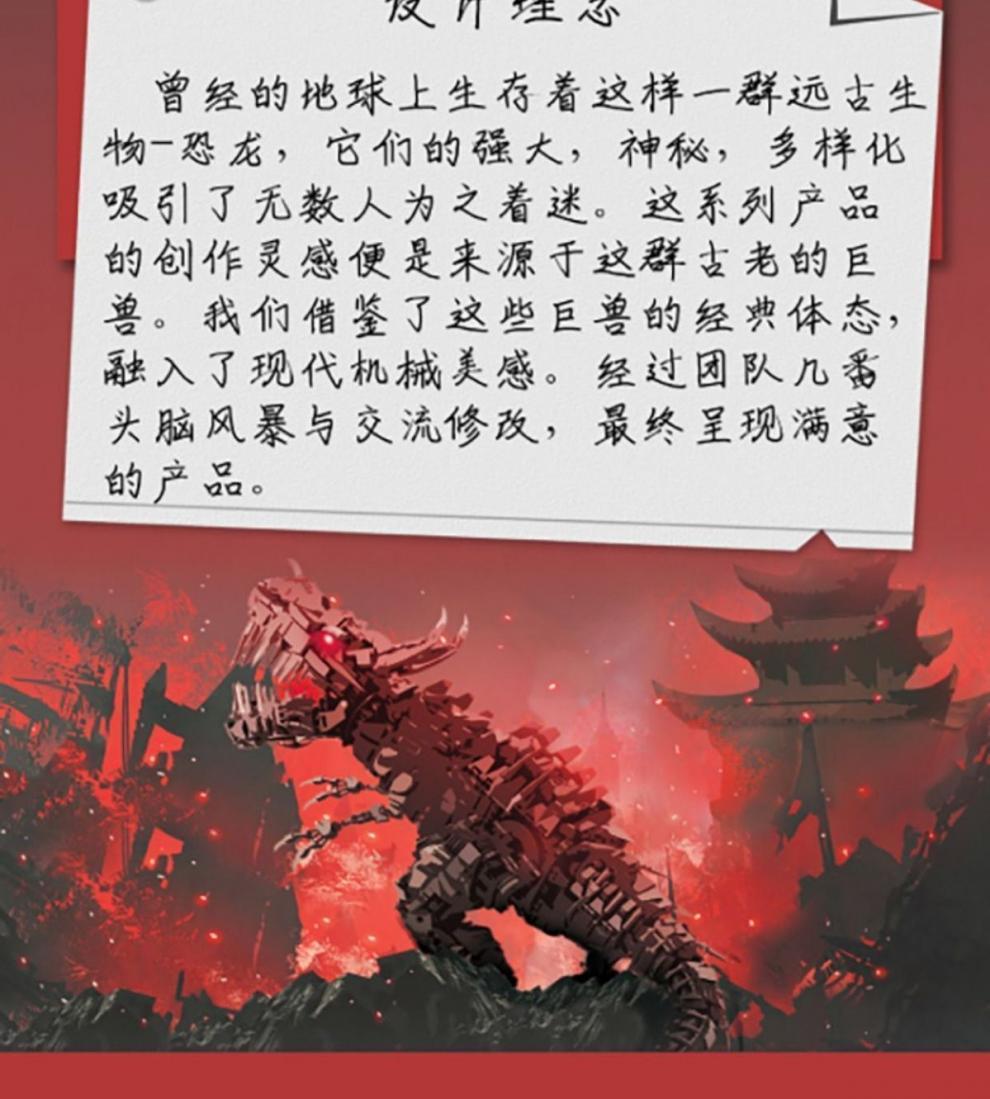 设计理念
曾经的地球上生存着这样一群远古生
物-恐龙，它们的强大，神秘，多样化
吸引了无数人为之着迷。这系列产品
的创作灵感便是来源于这群古老的巨
兽。我们借鉴了这些巨兽的经典体态，
融入了现代机械美感。经过团队几番
头脑风暴与交流修改，最终呈现满意
的产品。